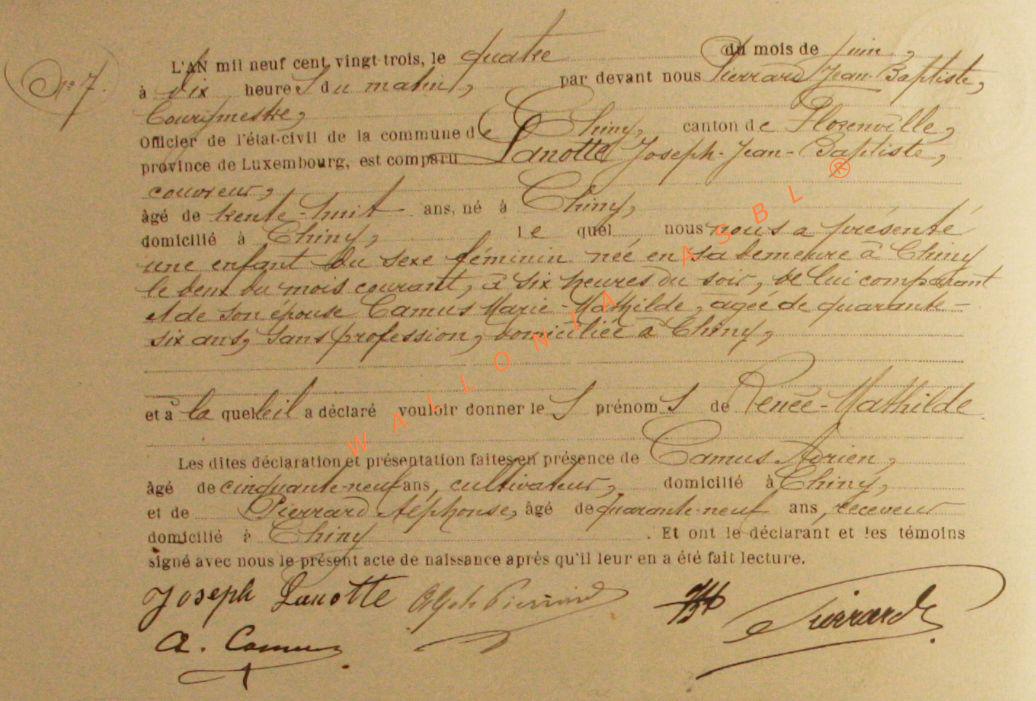 N° 7.
L'AN mil neuf cent vingt-trois, le quatre du mois de juin,
à dix heures du matin, par devant nous Pierrard Jean-Baptiste,
Bourgmestre,
Officier de l'état-civil de la commune de Chiny, canton de Florenville,
province de Luxembourg, est comparu Lanotte Joseph-Jean-Baptiste,
couvreur,
âgé de trente-huit ans, né à Chiny,
domicilié à Chiny, le quel nous nous a présenté
une enfant du sexe féminin née en sa demeure à Chiny
le deux du mois courant, à six heures du soir, de lui comparant
et de son épouse Camus Marie-Mathilde, agée de quarante-
six ans, sans profession, domiciliée à Chiny,
et à la quelle il a déclaré vouloir donner les prénoms de Renée-Mathilde
Les dites déclaration et présentation faites en présence de Camus Adrien,
âgé de cinquante-neuf ans, cultivateur, domicilié à Chiny,
et de Pierrard Alphonse, âgé de quarante-neuf ans, receveur
domicilié à Chiny. Et ont le déclarant et les témoins
signé avec nous le présent acte de naissance après qu'il leur en a été fait lecture.
Joseph Lanotte Alph Pierrard Pierrard
A. Camus
WALLONIA ASBL ®